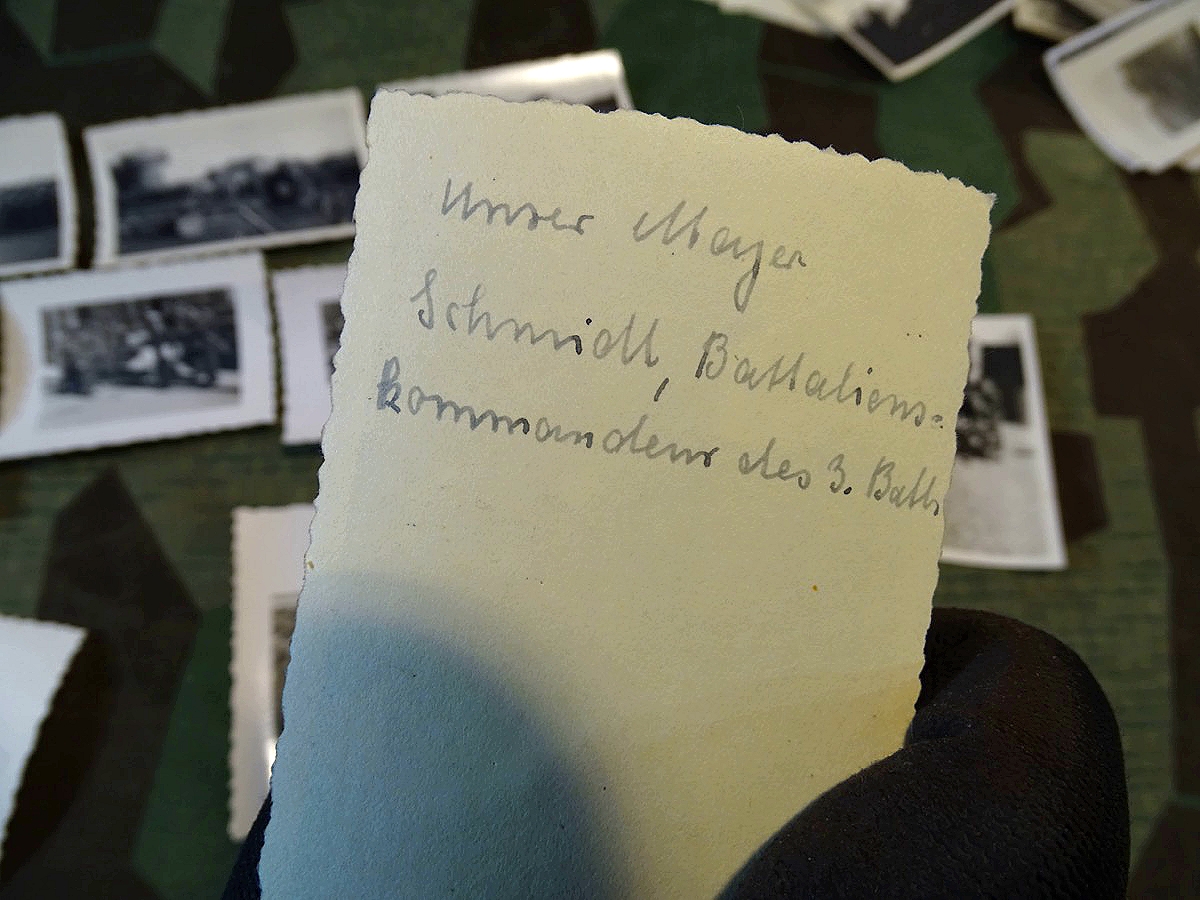 Unser Mayer
Schmidt, Batталiens-
kommandeur des 3. Batls